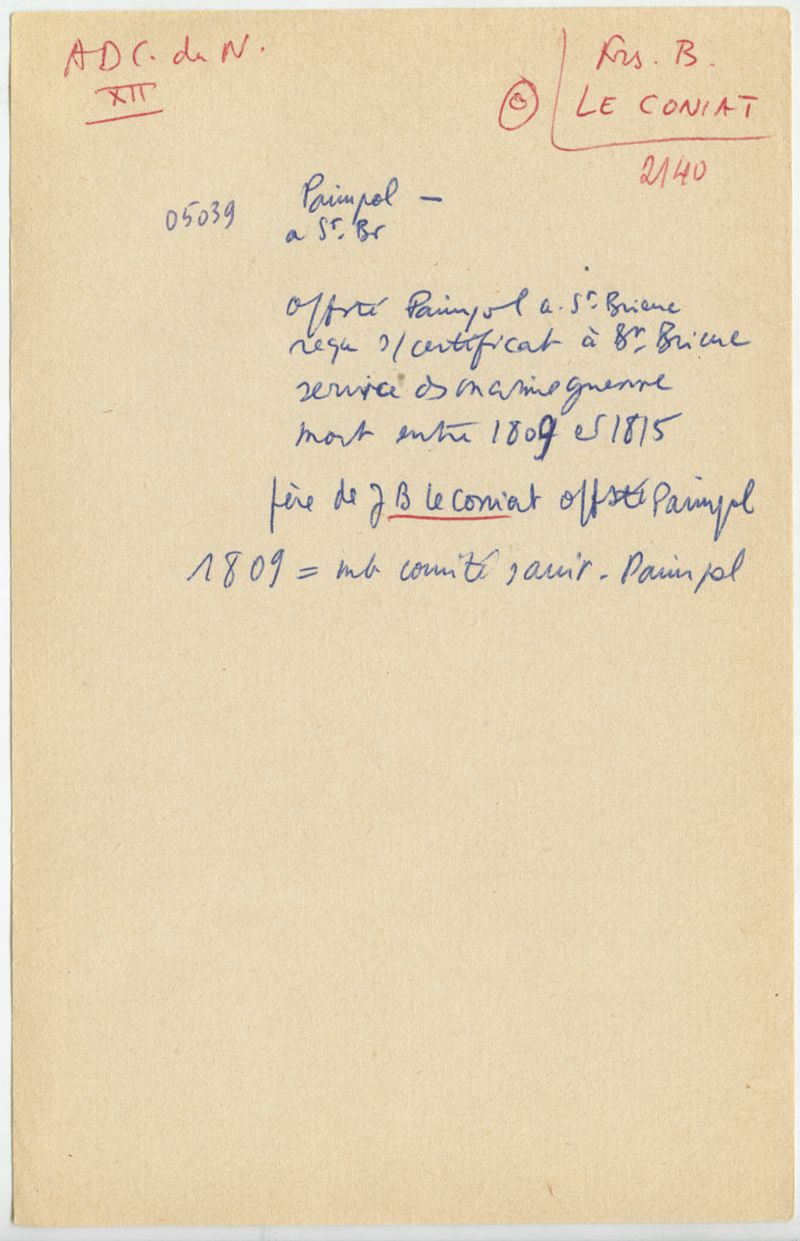 ADC. du N.
XII
Frs. B.
LE CONIAT
2140
05039
Paimpol —
a St. Br
offsté Paimpol a. St. Brieuc
reçu s/certificat à St. Brieuc
service ds marine guerre
mort entre 1809 et 1815
père de J B Le Coniat offsté Paimpol
1809 = mb comité sanit. Paimpol